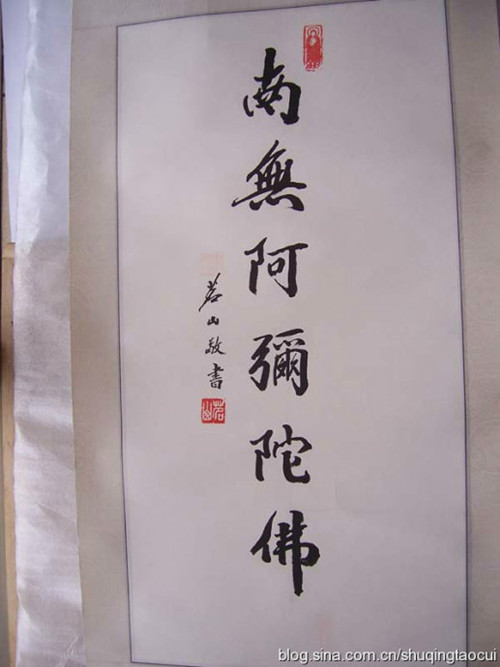 南無阿彌陀佛
茗山敬書
茗山
blog.sina.com.cn/shuqingtaocui